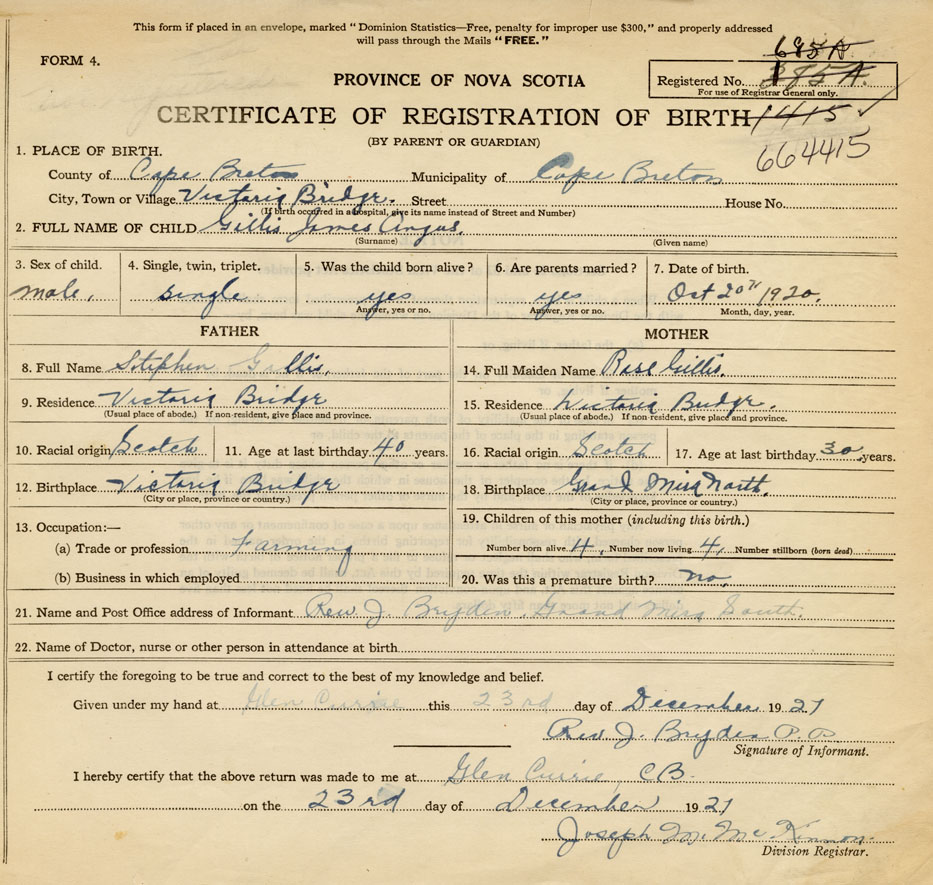 This form if placed in an envelope, marked "Dominion Statistics—Free, penalty for improper use $300," and properly addressed
will pass through the Mails "FREE."
685 A
FORM 4.
PROVINCE OF NOVA SCOTIA
Registered No. 185 A.
For use of Registrar General only.
CERTIFICATE OF REGISTRATION OF BIRTH 1415
(BY PARENT OR GUARDIAN)
664415
1. PLACE OF BIRTH.
County of Cape Breton Municipality of Cape Breton
City, Town or Village Victoria Bridge. Street House No.
(If birth occurred in a hospital, give its name instead of Street and Number)
2. FULL NAME OF CHILD Gillis James Angus.
(Surname) (Given name)
3. Sex of child. 4. Single, twin, triplet. 5. Was the child born alive? 6. Are parents married? 7. Date of birth.
male. single yes yes Oct 20th 1920.
Answer, yes or no. Answer, yes or no. Month, day, year.
FATHER MOTHER
8. Full Name Stephen Gillis. 14. Full Maiden Name Rose Gillis.
9. Residence Victoria Bridge 15. Residence Victoria Bridge.
(Usual place of abode.) If non-resident, give place and province. (Usual place of abode.) If non-resident, give place and province.
10. Racial origin Scotch 11. Age at last birthday 40 years. 16. Racial origin Scotch 17. Age at last birthday 30 years.
12. Birthplace Victoria Bridge 18. Birthplace Grand Mira North.
(City or place, province or country.) (City or place, province or country.)
13. Occupation:— 19. Children of this mother (including this birth.)
(a) Trade or profession Farming Number born alive 4, Number now living 4, Number stillborn (born dead)
(b) Business in which employed 20. Was this a premature birth? no.
21. Name and Post Office address of Informant Rev J. Bryden, Grand Mira South.
22. Name of Doctor, nurse or other person in attendance at birth
I certify the foregoing to be true and correct to the best of my knowledge and belief.
Given under my hand at Glen Currie this 23rd day of December 1927
Rev J. Bryden P.P.
Signature of Informant.
I hereby certify that the above return was made to me at Glen Currie, C.B.
on the 23rd day of December 1927
Joseph M. McKinnon
Division Registrar.